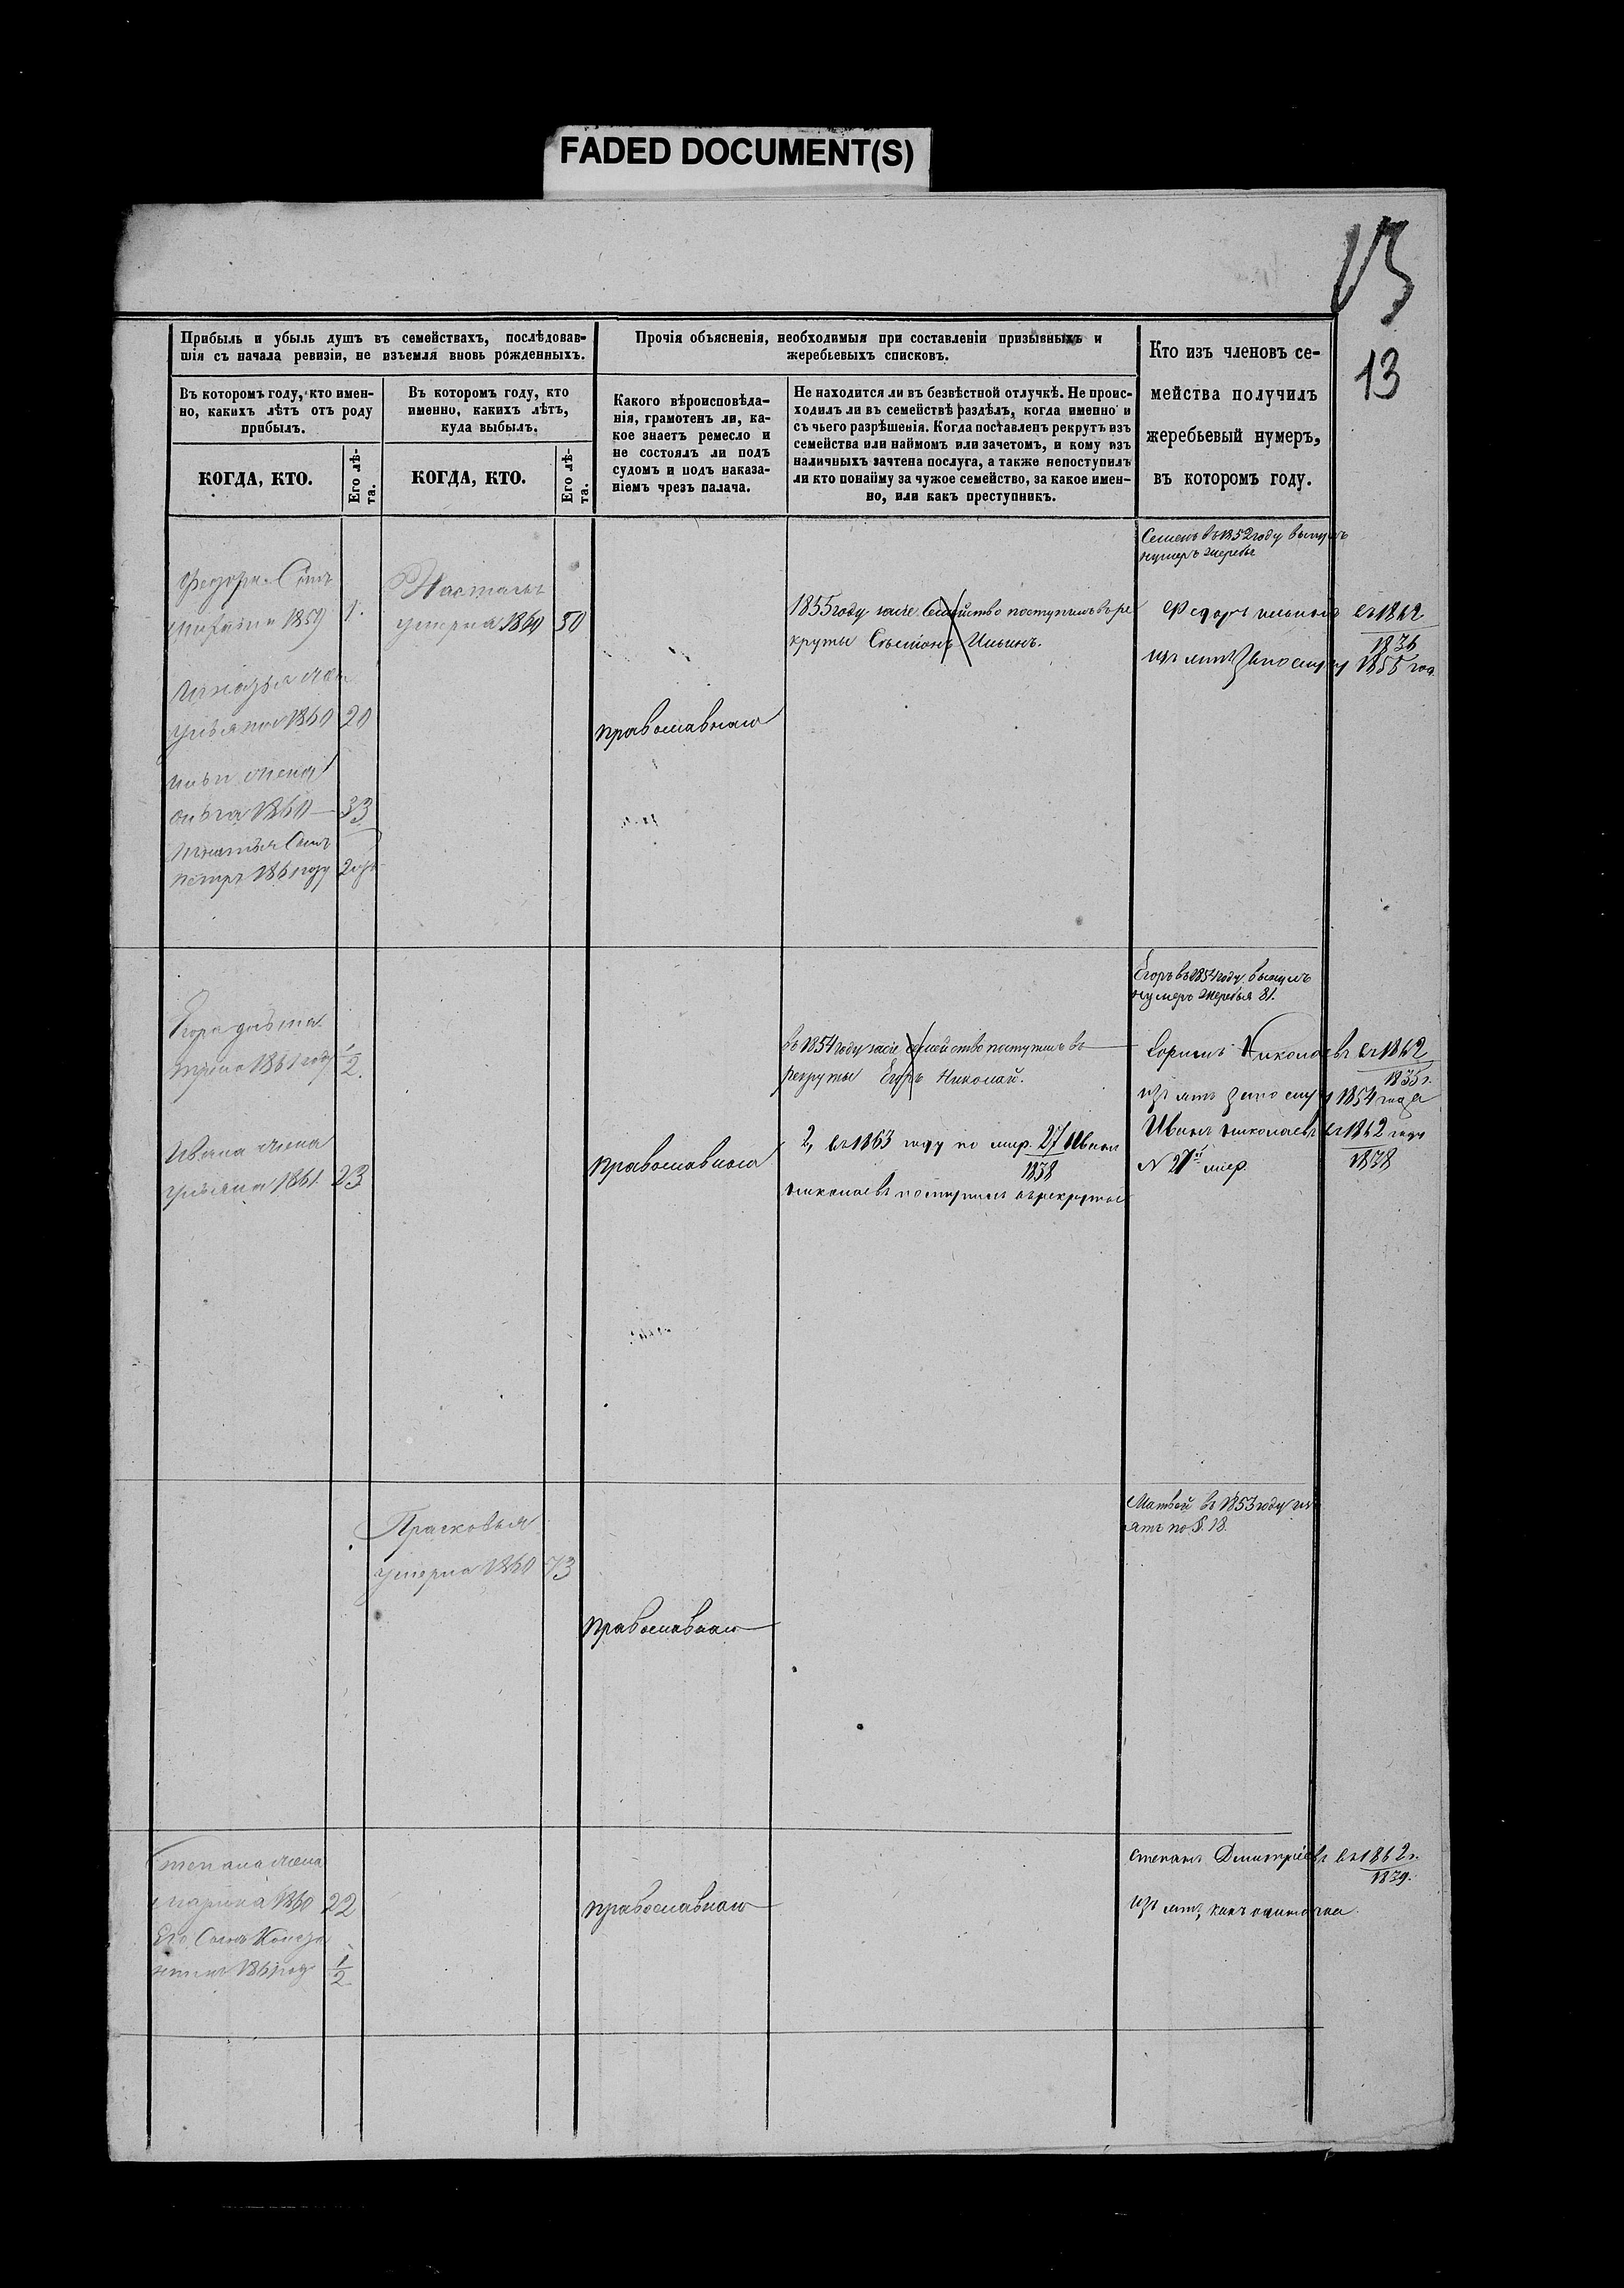 FADED DOCUMENT(S)
13
13
Прибыль и убыль душъ въ семействахъ, послѣдовав-
шія съ начала ревизіи, не взъемля вновь рожденныхъ.
Въ которомъ году, кто имен-
но, какихъ лѣтъ отъ роду
прибылъ.
КОГДА, КТО.
Его лѣ-
та.
Въ которомъ году, кто
именно, какихъ лѣтъ,
куда выбылъ.
КОГДА, КТО.
Его лѣ-
та.
Прочія объясненія, необходимыя при составленіи призывныхъ и
жеребьевыхъ списковъ.
Какого вѣроисповѣда-
нія, грамотенъ ли, ка-
кое знаетъ ремесло и
не состоялъ ли подъ
судомъ и подъ наказа-
ніемъ чрезъ палача.
Не находится ли въ безвѣстной отлучкѣ. Не проис-
ходилъ ли въ семействѣ раздѣлъ, когда именно и
съ чьего разрѣшенія. Когда поставленъ рекрутъ изъ
семейства или наймомъ или зачетомъ, и кому изъ
наличныхъ зачтена послуга, а также непоступилъ
ли кто понайму за чужое семейство, за какое имен-
но, или какъ преступникъ.
Кто изъ членовъ се-
мейства получилъ
жеребьевый нумеръ,
въ которомъ году.
Семенъ въ 1852 году вынулъ
нумеръ жеребья
Федора Сынъ
1859 1.
умерла 1860 50
1855 году Семейство поступилъ въ ре
круты Ильинъ.
Федоръ въ 1862
1836
изъятъ 1855 год.
жена
1860 20
православнаго
жена
1860 33
Сынъ
петръ 1861 году
Егоръ въ 1854 году вынулъ
нумеръ жеребья 81.
Егора
1861 году 1/2.
въ 1854 году семейство поступилъ въ
рекруты Егоръ Николай.
Николаевъ въ 1862
1835 г.
изъятъ 1854 года
Ивана жена
1861 23
православнаго
2, въ 1863 году по жер. 27 Иванъ
1838
Николаевъ поступилъ въ рекруты
Иванъ Николаевъ въ 1862 году
1838
N 27й жер.
Матвей въ 1853 году из
ятъ по § 18.
Прасковья
умерла 1860 73
православнаго
Степана жена
Марина 1860 22
Его Сынъ
1861 год 1/2
православнаго
Степанъ Дмитріевъ въ 1862 г.
1839.
изъятъ, какъ одиночка